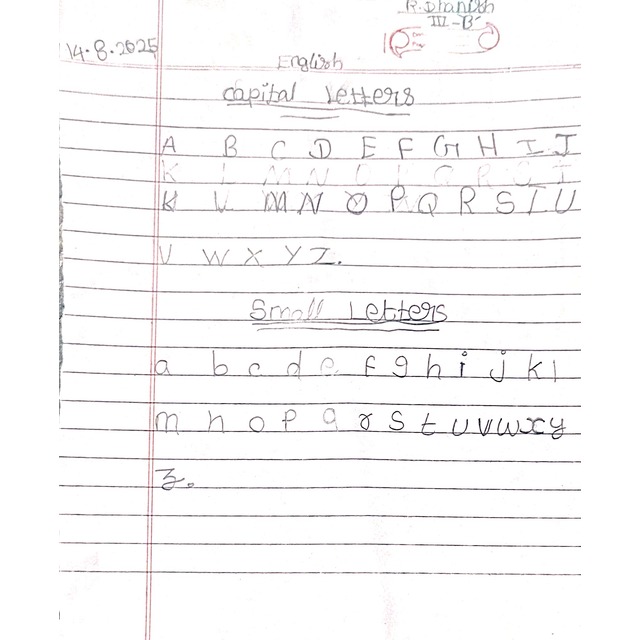 R. Dhanish
III - B
14.8.2025
English
Capital Letters
A B C D E F G H I J
K L M N O P Q R S T U
V W X Y Z.
Small Letters
a b c d e f g h i j k l
m n o p q r s t u v w x y
z.